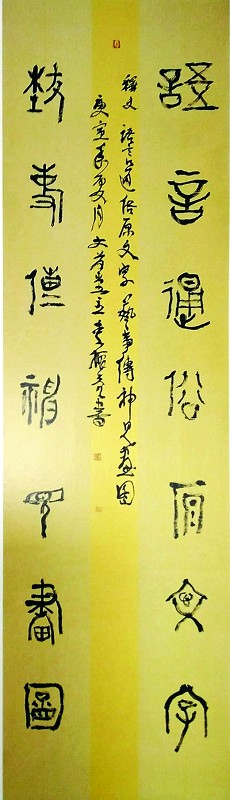 語言通俗原文字
釋文 語言通俗原文字 藝事傳神見畫圖
庚寅年夏月 書
藝事傳神見畫圖